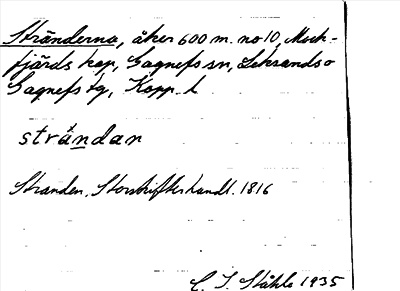 Stränderna, åker 600 m. no 10, Mock-
fjärds kap, Gagnefs sn, Leksands o
Gagnefs tg, Kopp. l.
strándan
Stranden. Storskifteshandl. 1816
C. I. Ståhle 1935